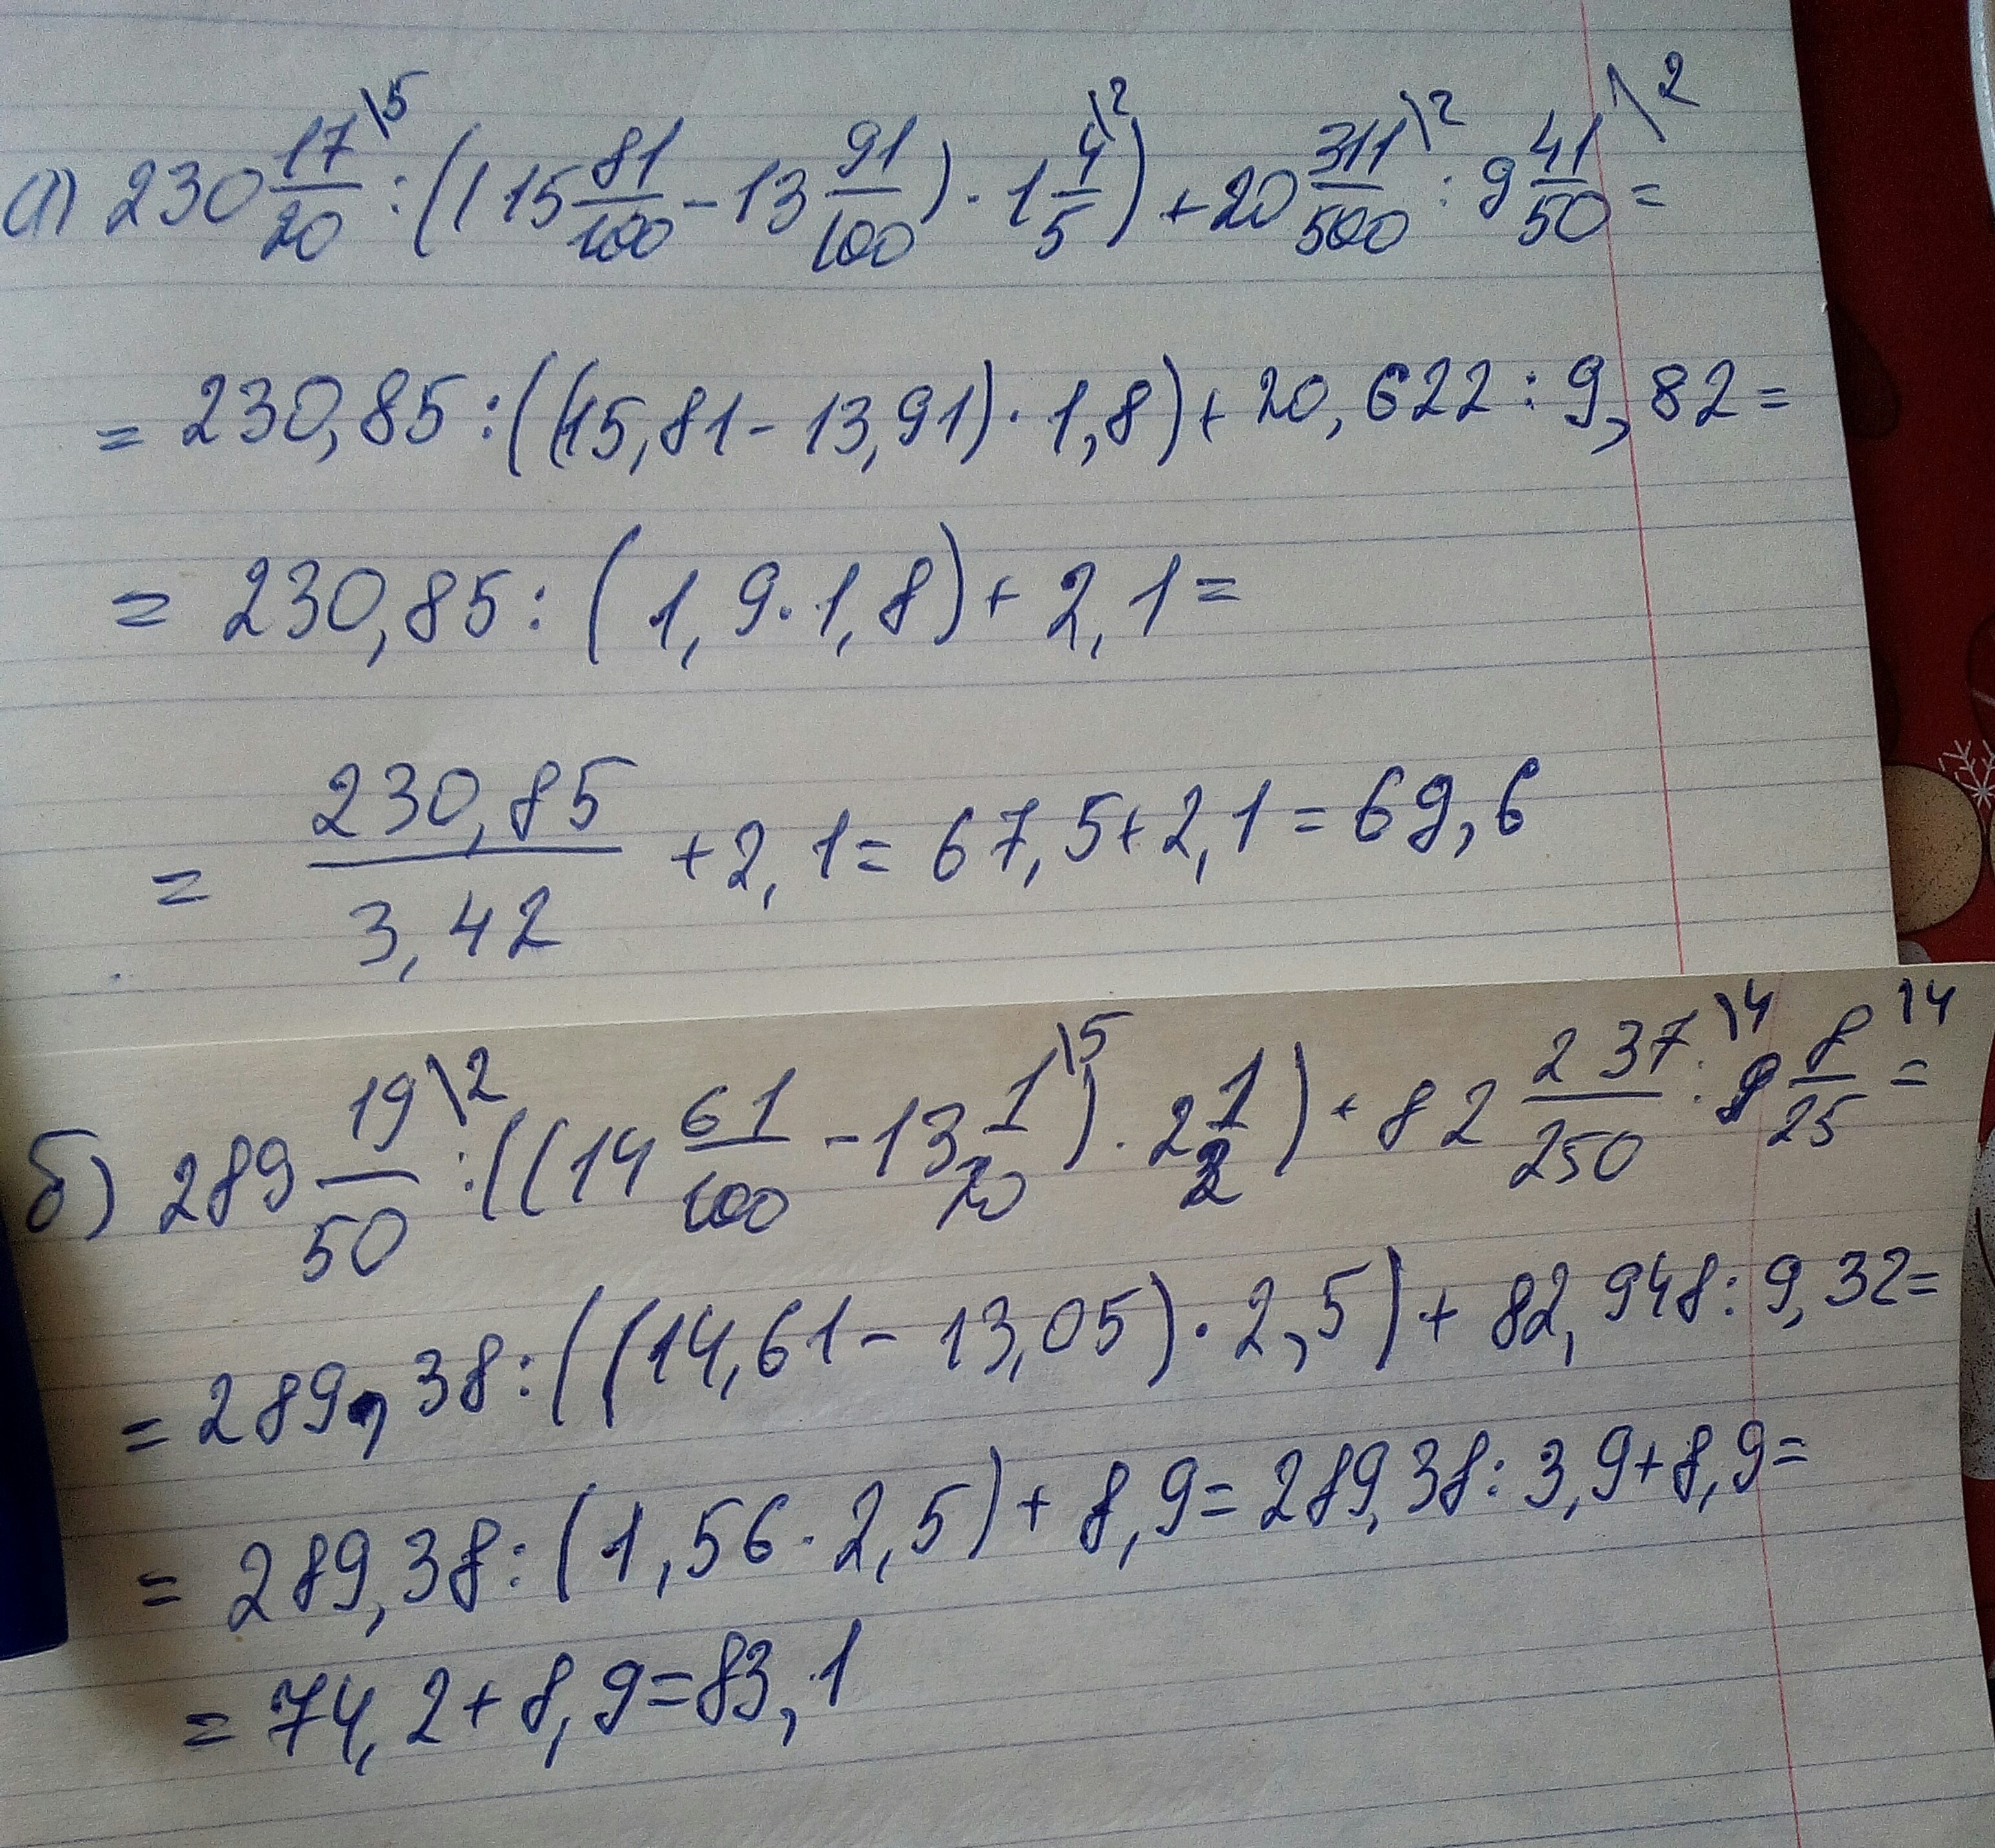 а) 230 17/20 \5 : ((15 81/100 - 13 91/100) · 1 4/5 \2) + 20 311/500 \2 : 9 41/50 \2 =
= 230,85 : ((15,81 - 13,91) · 1,8) + 20,622 : 9,82 =
= 230,85 : (1,9 · 1,8) + 2,1 =
= 230,85/3,42 + 2,1 = 67,5 + 2,1 = 69,6
б) 289 19/50 \2 : ((14 61/100 - 13 1/20 \5) · 2 1/2) + 82 237/250 \4 : 9 8/25 \4 =
= 289,38 : ((14,61 - 13,05) · 2,5) + 82,948 : 9,32 =
= 289,38 : (1,56 · 2,5) + 8,9 = 289,38 : 3,9 + 8,9 =
= 74,2 + 8,9 = 83,1